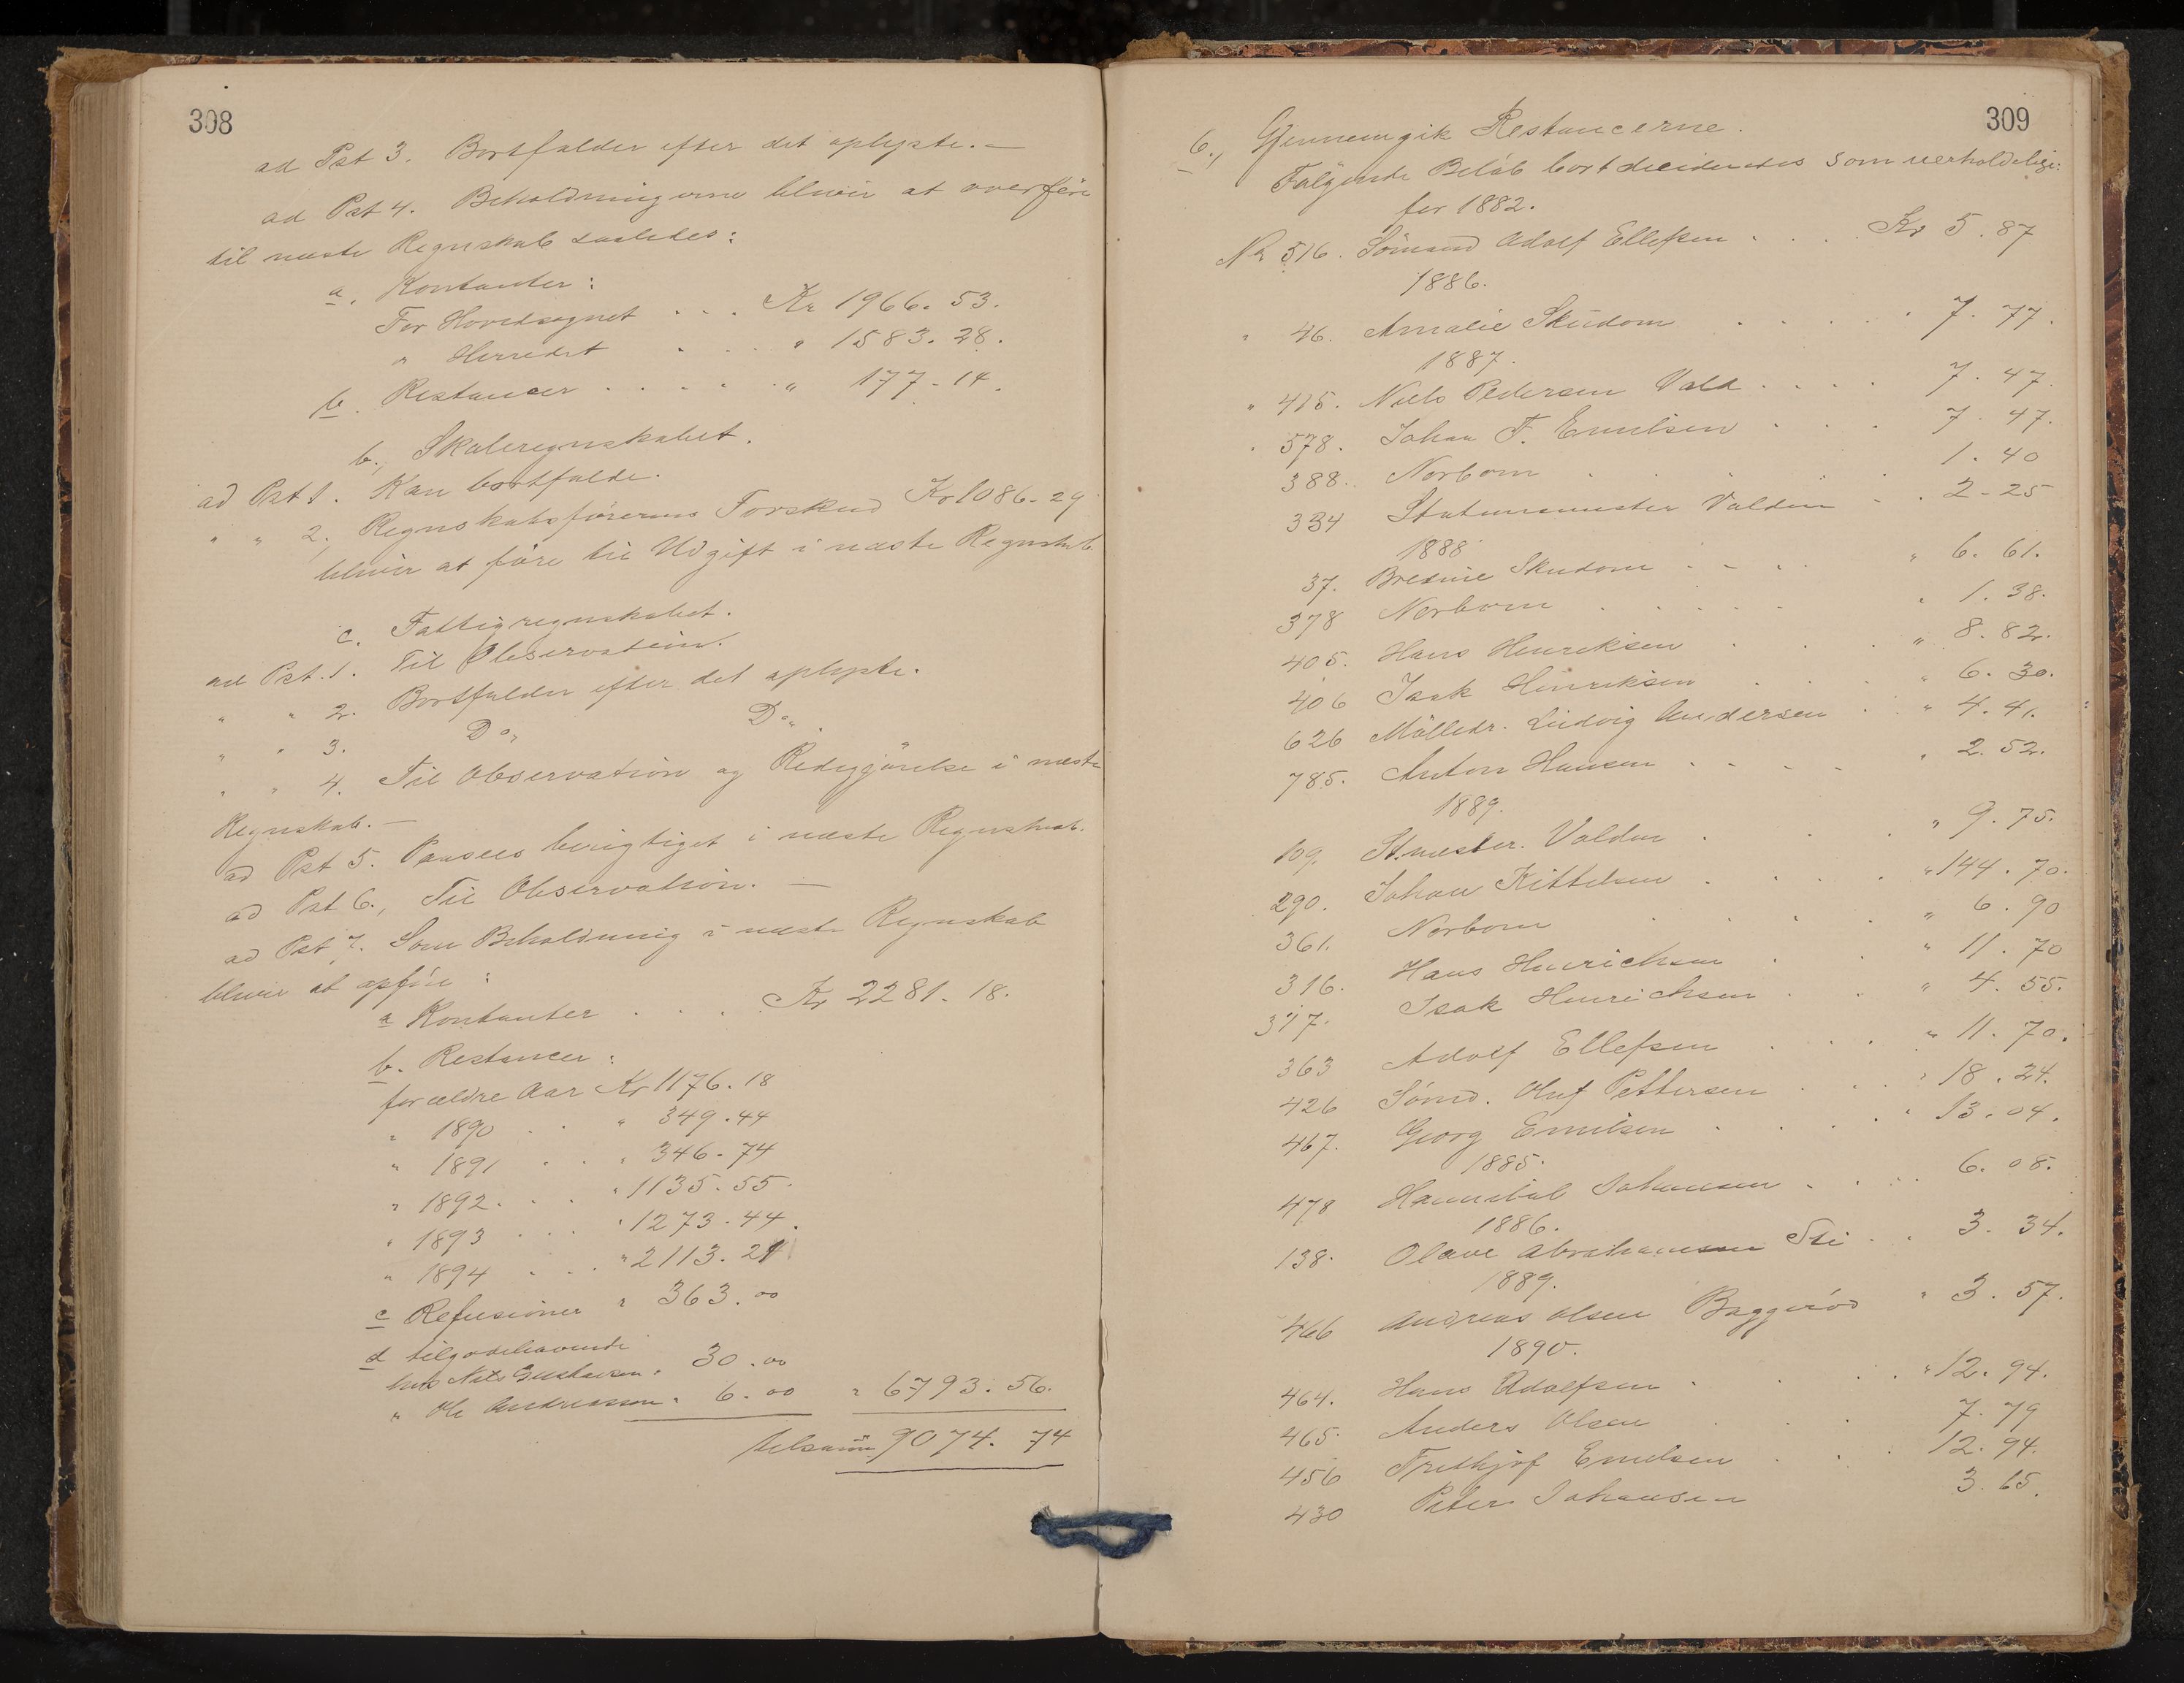 308
ad Pst 3. Bortfalder efter det oplyste. —
ad Pst 4. Beholdningerne bliver at overføre
til næste Regnskab saaledes:
a. Kontanter:
For Hovedsognet . . . Kr 1966. 53.
" Herredet . . . " 1583. 28.
b. Restancer . . . . . " 177 - 14.
b., Skoleregnskabet.
ad Pst 1. Kan bortfalde.
" " 2., Regnskabsførerens Forskud Kr 1086 - 29
bliver at føre til Udgift i næste Regnskab.
c. Fattigregnskabet.
ad Pst. 1. Til Observation.
" " 2. Bortfalder efter det oplyste.
" " 3. Do " Do "
" " 4. Til Observation og Redegjørelse i næste
Regnskab. —
ad Pst 5. Paasees berigtiget i næste Regnskab.
ad Pst 6., Til Observation. —
ad Pst 7. Som Beholdning i næste Regnskab
bliver at opføre:
a Kontanter . . . . Kr 2281. 18.
b. Restancer:
for ældre Aar Kr 1176. 18
" 1890 . . " 349. 44
" 1891 . . " 346 - 74
" 1892 . . . " 1135. 55.
" 1893 . . . " 1273. 44.
" 1894 . . . " 2113. 21
c Refusioner " 363. 00
d tilgodehavende
hos Nils Gustavsen " 30. 00
" Ole Andreassen " 6. 00 " 6793. 56.
tilsam 9074. 74
309
6., Gjennemgik Restancerne.
Følgende Beløb bortdecideredes som uerholdelige:
for 1882.
No 516. Sømand Adolf Ellefsen . . . . Kr 5. 87
1886.
" 46. Amalie Skudom . . . . . 7. 77.
1887.
" 415. Niels Pedersen Vold . . . . 7. 47.
" 578. Johan F. Emilsen . . . 7. 47.
388. Norbom . . . . 1. 40
334 Stationsmester Valden . . 2 - 25
1888
37. Bredine Skudom . . . . " 6. 61.
378 Norbom . . . . . " 1. 38.
405. Hans Henriksen . . . " 8. 82.
406 Isak Henriksen . . . " 6. 30.
626 Mølledr. Ludvig Andersen . " 4. 41.
785. Anton Hansen . . . . " 2. 52.
1889.
109. St.mester. Valden . . . " 9. 75.
290. Johan Kittelsen . . . . " 144. 70.
361. Norbom . . . . " 6. 90
316. Hans Henrichsen . . " 11. 70
317. Isak Henrichsen . . " 4. 55.
363 Adolf Ellefsen . . . " 11. 70.
426 Sømd. Oluf Pettersen . . . " 18. 24.
467. Georg Emilsen . . . . " 13. 04.
1885.
478 Hannibal Johansen . . . . 6. 08.
1886.
138. Olave Abrahamsen . . 3. 34.
1889.
466 Andreas Olsen Baggerød " 3. 57.
1890.
464. Hans Adolfsen . . . . " 12. 94.
465. Anders Olsen . . . 7. 79
456 Frithjof Emilsen . . . 12. 94.
430 Peter Johansen 3. 65.